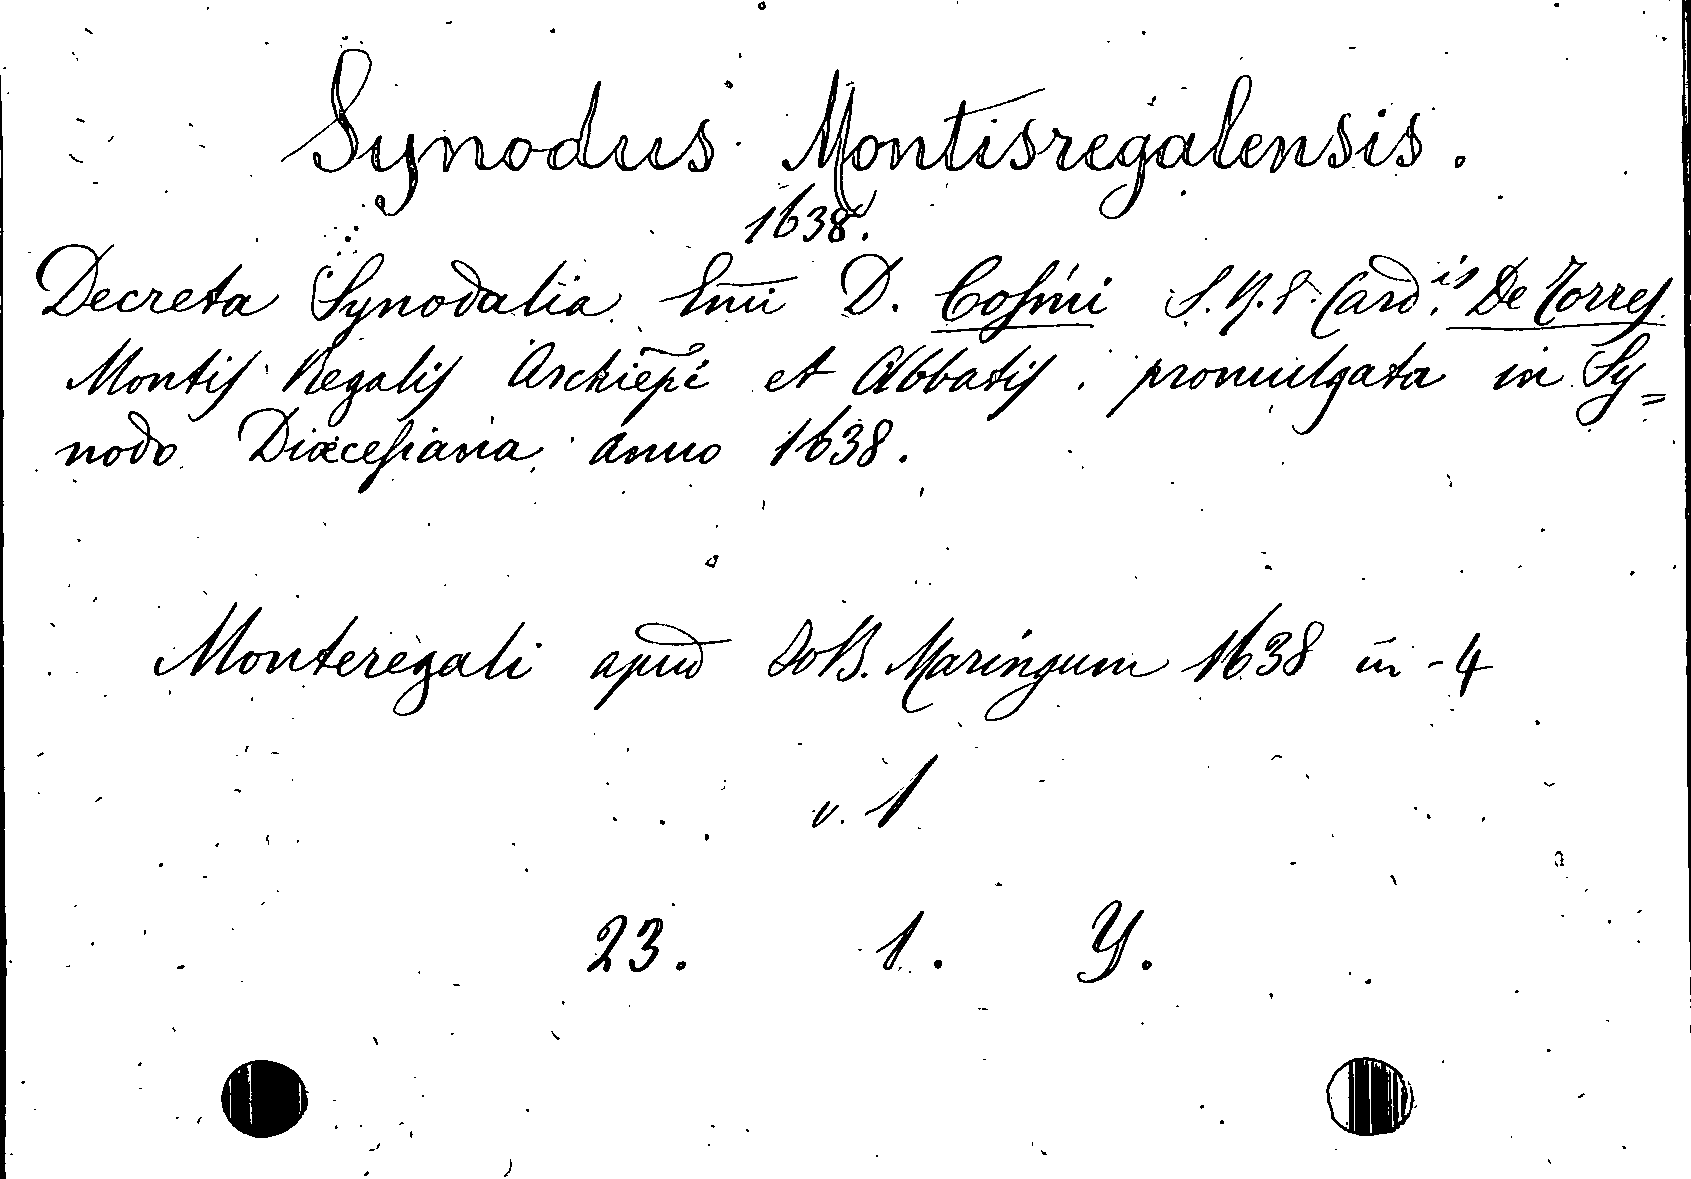 Synodus Montisregalensis.
1638.
Decreta Synodalia Em̄i D. Cosmi S. R. E. Card.is De Torres
Montis Regalis Archiep̄i et Abbatis promulgata in Sy=
nodo Diœcesana anno 1638.
Monteregali apud Maringum 1638 in-4
v. 1
23. 1. Y.